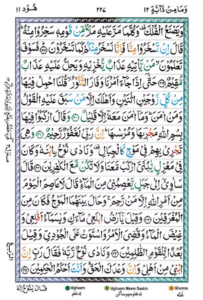 وَمَا مِنْ دَآبَّةٍ ١٢
٢٢٧
هُوْد ١١
وَيَصْنَعُ الْفُلْكَ ۫ وَكُلَّمَا مَرَّ عَلَيْهِ مَلَاٌ مِّنْ قَوْمِهٖ سَخِرُوْا مِنْهُ ؕ
قَالَ اِنْ تَسْخَرُوْا مِنَّا فَاِنَّا نَسْخَرُ مِنْكُمْ كَمَا تَسْخَرُوْنَ ؕ فَسَوْفَ
تَعْلَمُوْنَ ۙ مَنْ يَّاْتِيْهِ عَذَابٌ يُّخْزِيْهِ وَيَحِلُّ عَلَيْهِ عَذَابٌ
مُّقِيْمٌ حَتّٰۤى اِذَا جَآءَ اَمْرُنَا وَفَارَ التَّنُّوْرُ ۙ قُلْنَا احْمِلْ فِيْهَا
مِنْ كُلٍّ زَوْجَيْنِ اثْنَيْنِ وَاَهْلَكَ اِلَّا مَنْ سَبَقَ عَلَيْهِ الْقَوْلُ
وَمَنْ اٰمَنَ ؕ وَمَاۤ اٰمَنَ مَعَهٗۤ اِلَّا قَلِيْلٌ وَقَالَ ارْكَبُوْا فِيْهَا
بِسْمِ اللّٰهِ مَجْرٖىهَا وَمُرْسٰىهَا ؕ اِنَّ رَبِّيْ لَغَفُوْرٌ رَّحِيْمٌ وَهِيَ
تَجْرِيْ بِهِمْ فِيْ مَوْجٍ كَالْجِبَالِ ۫ وَنَادٰى نُوْحُ ۨابْنَهٗ وَكَانَ
فِيْ مَعْزِلٍ يّٰبُنَيَّ ارْكَبْ مَّعَنَا وَلَا تَكُنْ مَّعَ الْكٰفِرِيْنَ قَالَ
سَاٰوِيْۤ اِلٰى جَبَلٍ يَّعْصِمُنِيْ مِنَ الْمَآءِ ؕ قَالَ لَا عَاصِمَ الْيَوْمَ
مِنْ اَمْرِ اللّٰهِ اِلَّا مَنْ رَّحِمَ ۚ وَحَالَ بَيْنَهُمَا الْمَوْجُ فَكَانَ
مِنَ الْمُغْرَقِيْنَ وَقِيْلَ يٰۤاَرْضُ ابْلَعِيْ مَآءَكِ وَيٰسَمَآءُ اَقْلِعِيْ
وَغِيْضَ الْمَآءُ وَقُضِيَ الْاَمْرُ وَاسْتَوَتْ عَلَى الْجُوْدِيِّ وَقِيْلَ
بُعْدًا لِّلْقَوْمِ الظّٰلِمِيْنَ وَنَادٰى نُوْحٌ رَّبَّهٗ فَقَالَ رَبِّ
اِنَّ ابْنِيْ مِنْ اَهْلِيْ وَاِنَّ وَعْدَكَ الْحَقُّ وَاَنْتَ اَحْكَمُ الْحٰكِمِيْنَ